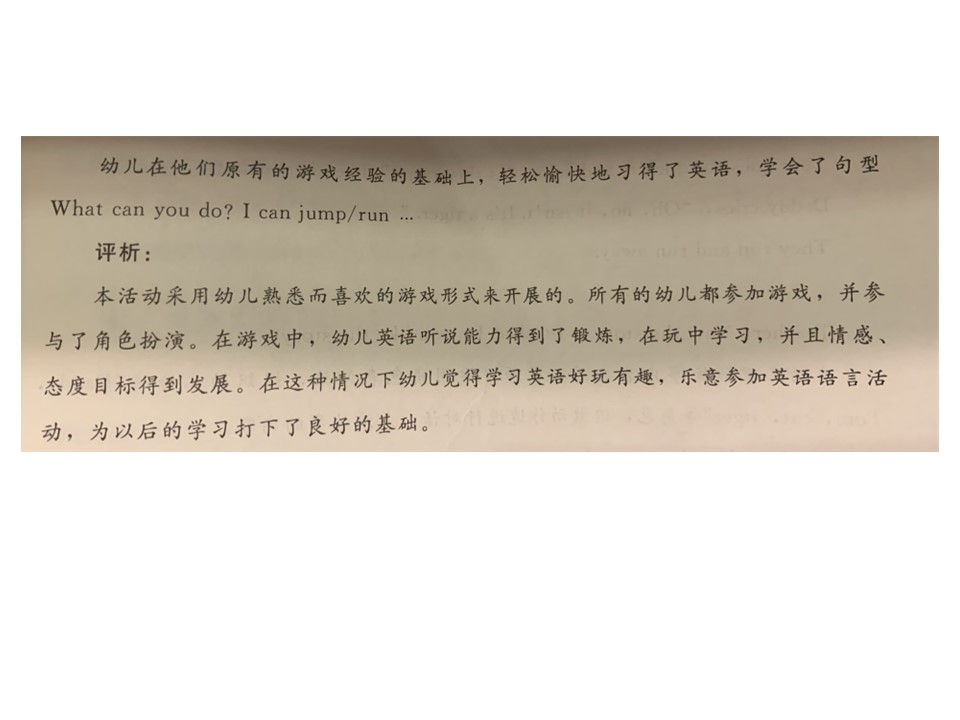 幼儿在他们原有的游戏经验的基础上，轻松愉快地习得了英语，学会了句型
What can you do? I can jump/run ...
评析：
本活动采用幼儿熟悉而喜欢的游戏形式来开展的。所有的幼儿都参加游戏，并参
与了角色扮演。在游戏中，幼儿英语听说能力得到了锻炼，在玩中学习，并且情感、
态度目标得到发展。在这种情况下幼儿觉得学习英语好玩有趣，乐意参加英语语言活
动，为以后的学习打下了良好的基础。